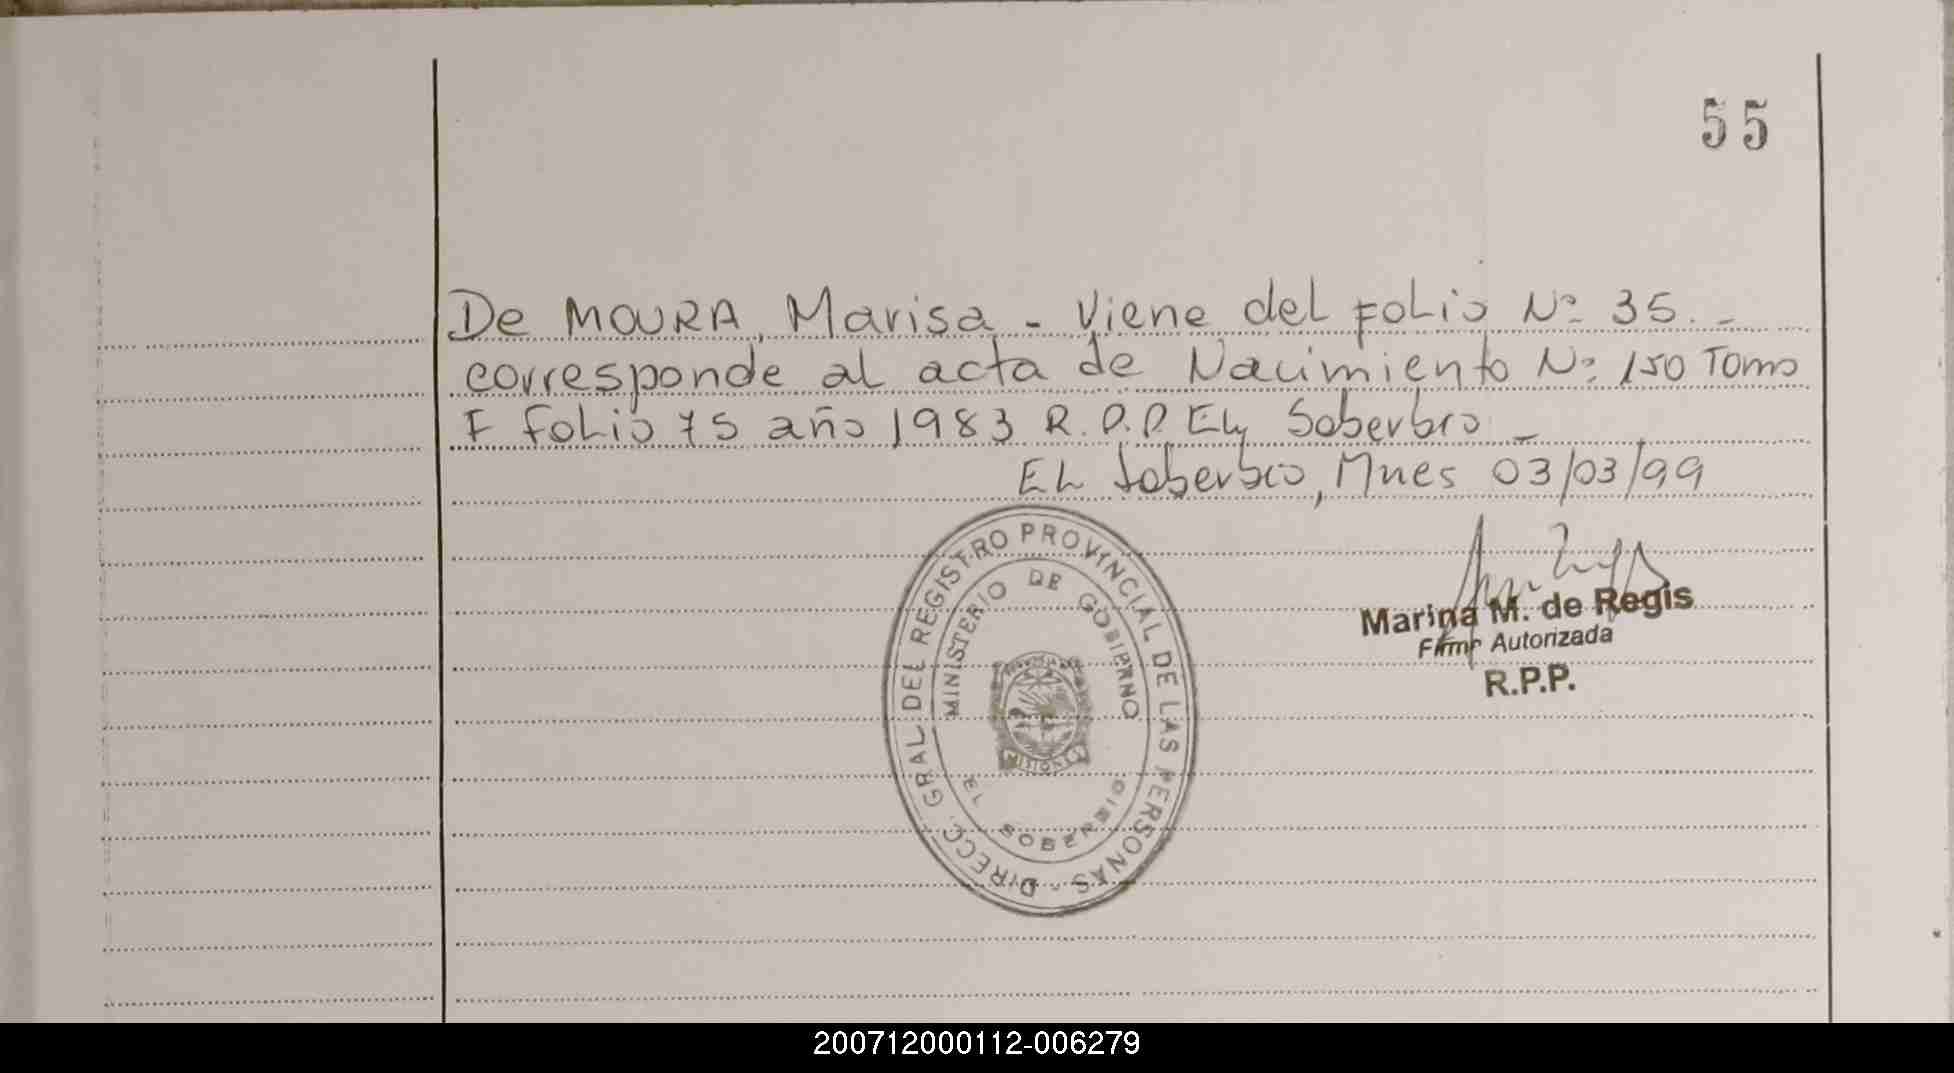 55
De MOURA, Marisa - Viene del Folio Nº 35. -
corresponde al acta de Nacimiento Nº 150 Tomo
I Folio 75 año 1983 R.P.P EL Soberbio -
EL Soberbio, Mnes 03/03/99
DIRECC. GRAL DEL REGISTRO PROVINCIAL DE LAS PERSONAS -
MINISTERIO DE GOBIERNO
MISIONES
EL SOBERBIO
Marina M. de Regis
Firma Autorizada
R.P.P.
200712000112-006279